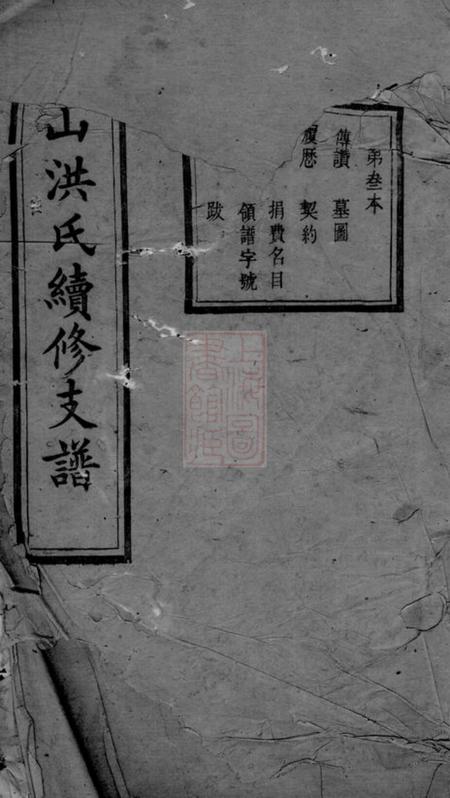 第叁本
傳讚 墓圖
履歷 契約
捐費名目
領譜字號
跋
山洪氏續修支譜
上海圖書館藏